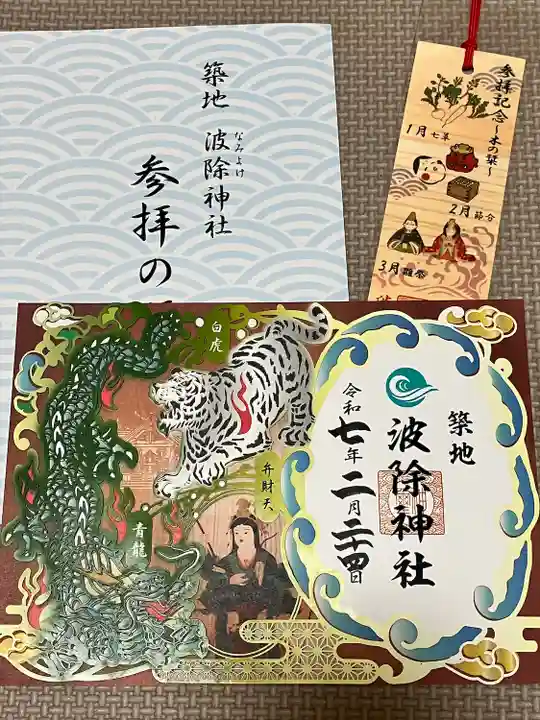 築地 波除神社
なみよけ
参拝の
参拝記念～木の栞～
1月 七草
2月 節分
3月 雛祭
白虎
弁財天
青龍
築地
波除神社
令和七年二月二十四日